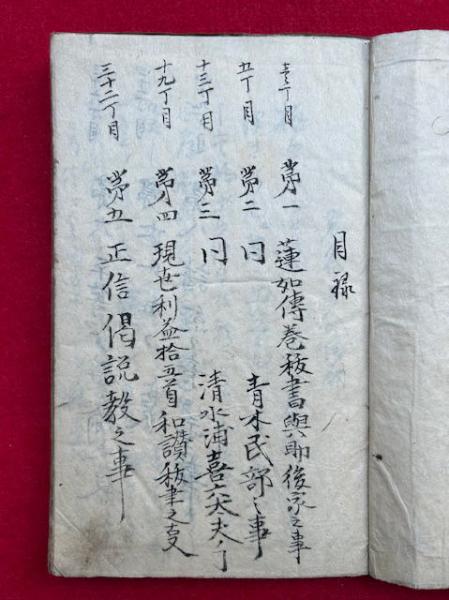 目録
壱丁目 第一 蓮如傳巻秡書與助後家之事
五丁目 第二 同 青木民部之事
十三丁目 第三 同 清水浦喜六太夫事
十九丁目 第四 現世利益拾五首和讃秡書之事
三十二丁目 第五 正信偈説教之事